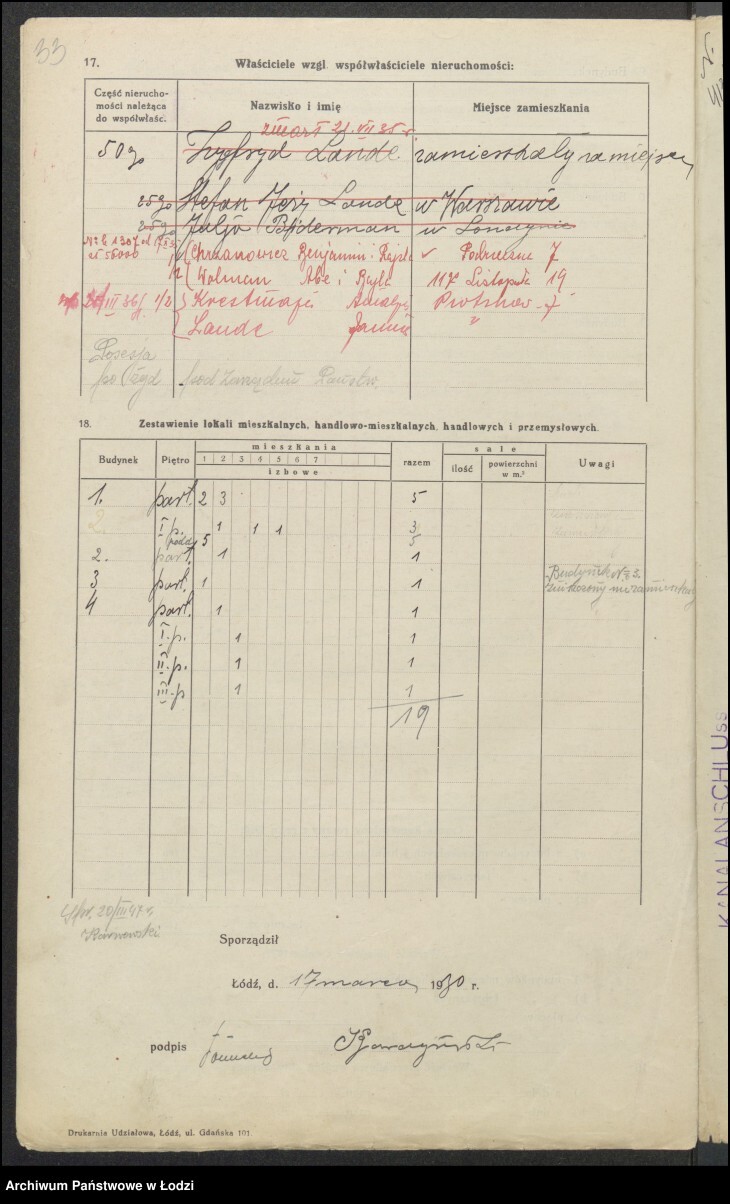 33
17. Właściciele wzgl. współwłaściciele nieruchomości:
Część nierucho-
mości należąca
do współwłaśc.
Nazwisko i imię
Miejsce zamieszkania
zmarł 21. VII 35 r
50% Zygfryd Lande zamieszkały na miejscu
25% Stefan Jerzy Lande w Warszawie
25% Julja Biderman w Londynie
1/2 Chrzanowicz Benjamin i Rajzla Podrzeczna 7
Wolman Aba i Rajla 11go Listopada 19
III 36 r. 1/2 Amalja Piotrkow. 7
Lande Janina "
Posesja
pod Zarządem Państw.
18. Zestawienie lokali mieszkalnych, handlowo-mieszkalnych, handlowych i przemysłowych.
Budynek
Piętro
mieszkania
1 2 3 4 5 6 7
izbowe
razem
sale
ilość
powierzchni
w m.²
Uwagi
1. part. 2 3 5
2.
I p. 1 1 1 3
podd. 5 5
2. part. 1 1
Budynek Nr 3.
3 part. 1 1
zniszczony niezamieszkały
4 part. 1 1
I p. 1 1
II p. 1 1
III p 1 1
19
KANALANSCHLUSS
Spr. 20/III 47 r.
Sporządził
Łódź, d. 17 marca 1930 r.
podpis
Drukarnia Udziałowa, Łódź, ul. Gdańska 101.
Archiwum Państwowe w Łodzi